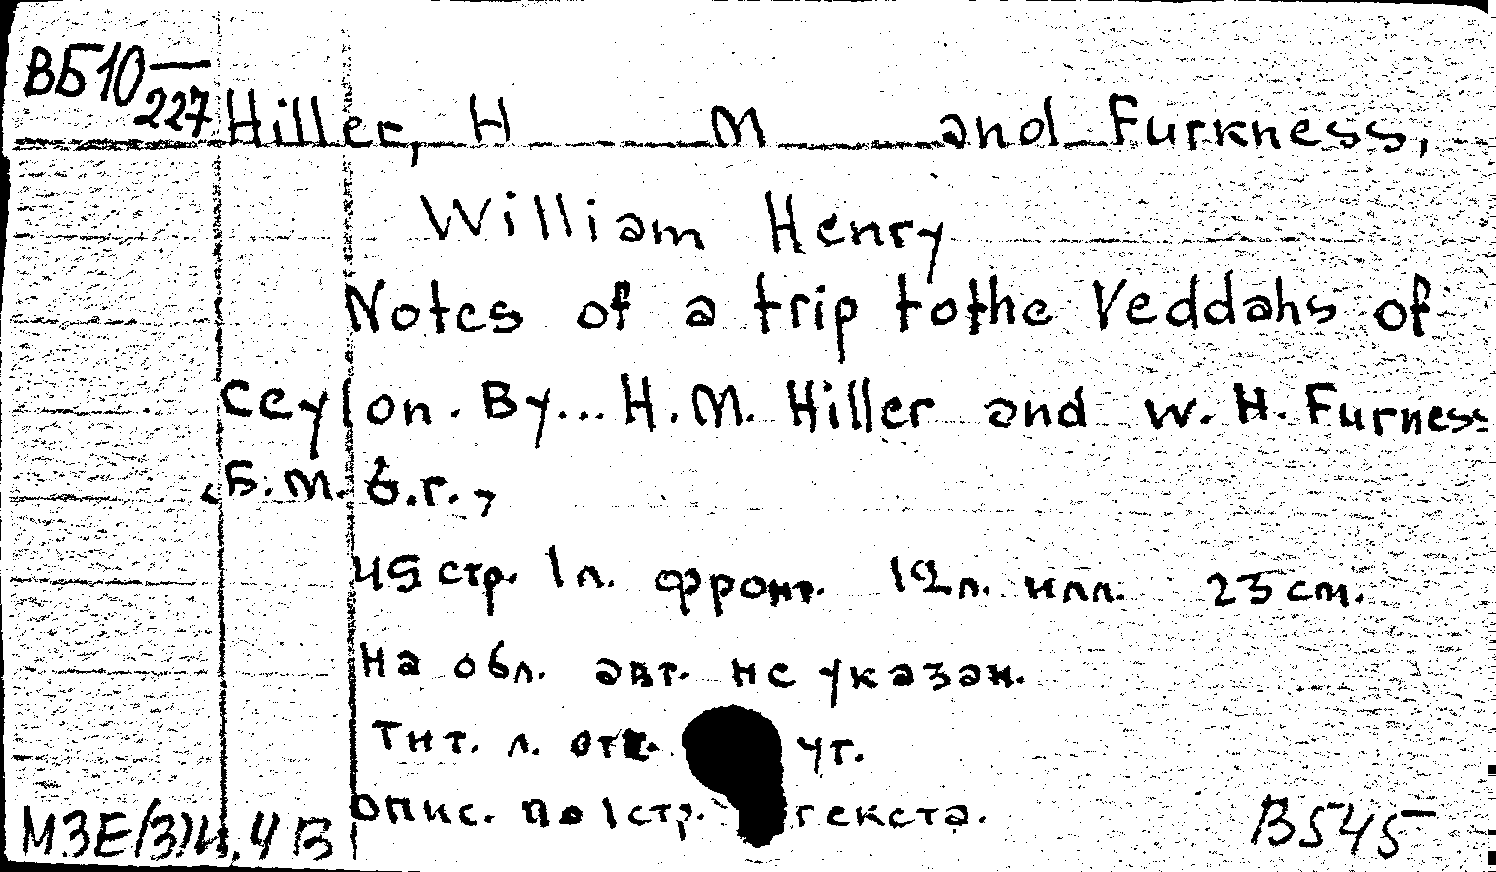 ВБ10—
227
Hiller, H M and Furkness,
William Henry
Notes of a trip tothe Veddahs of
Ceylon. By... H. M. Hiller and W. H. Furness
<Б. М. б. г.>
45 стр. 1 л. фронт. 12 л. илл. 23 см.
На обл. авт. не указан.
Тит. л. отс. ут.
опис. по 1 стр. текста.
МЗЕ(3)4.4В В545—